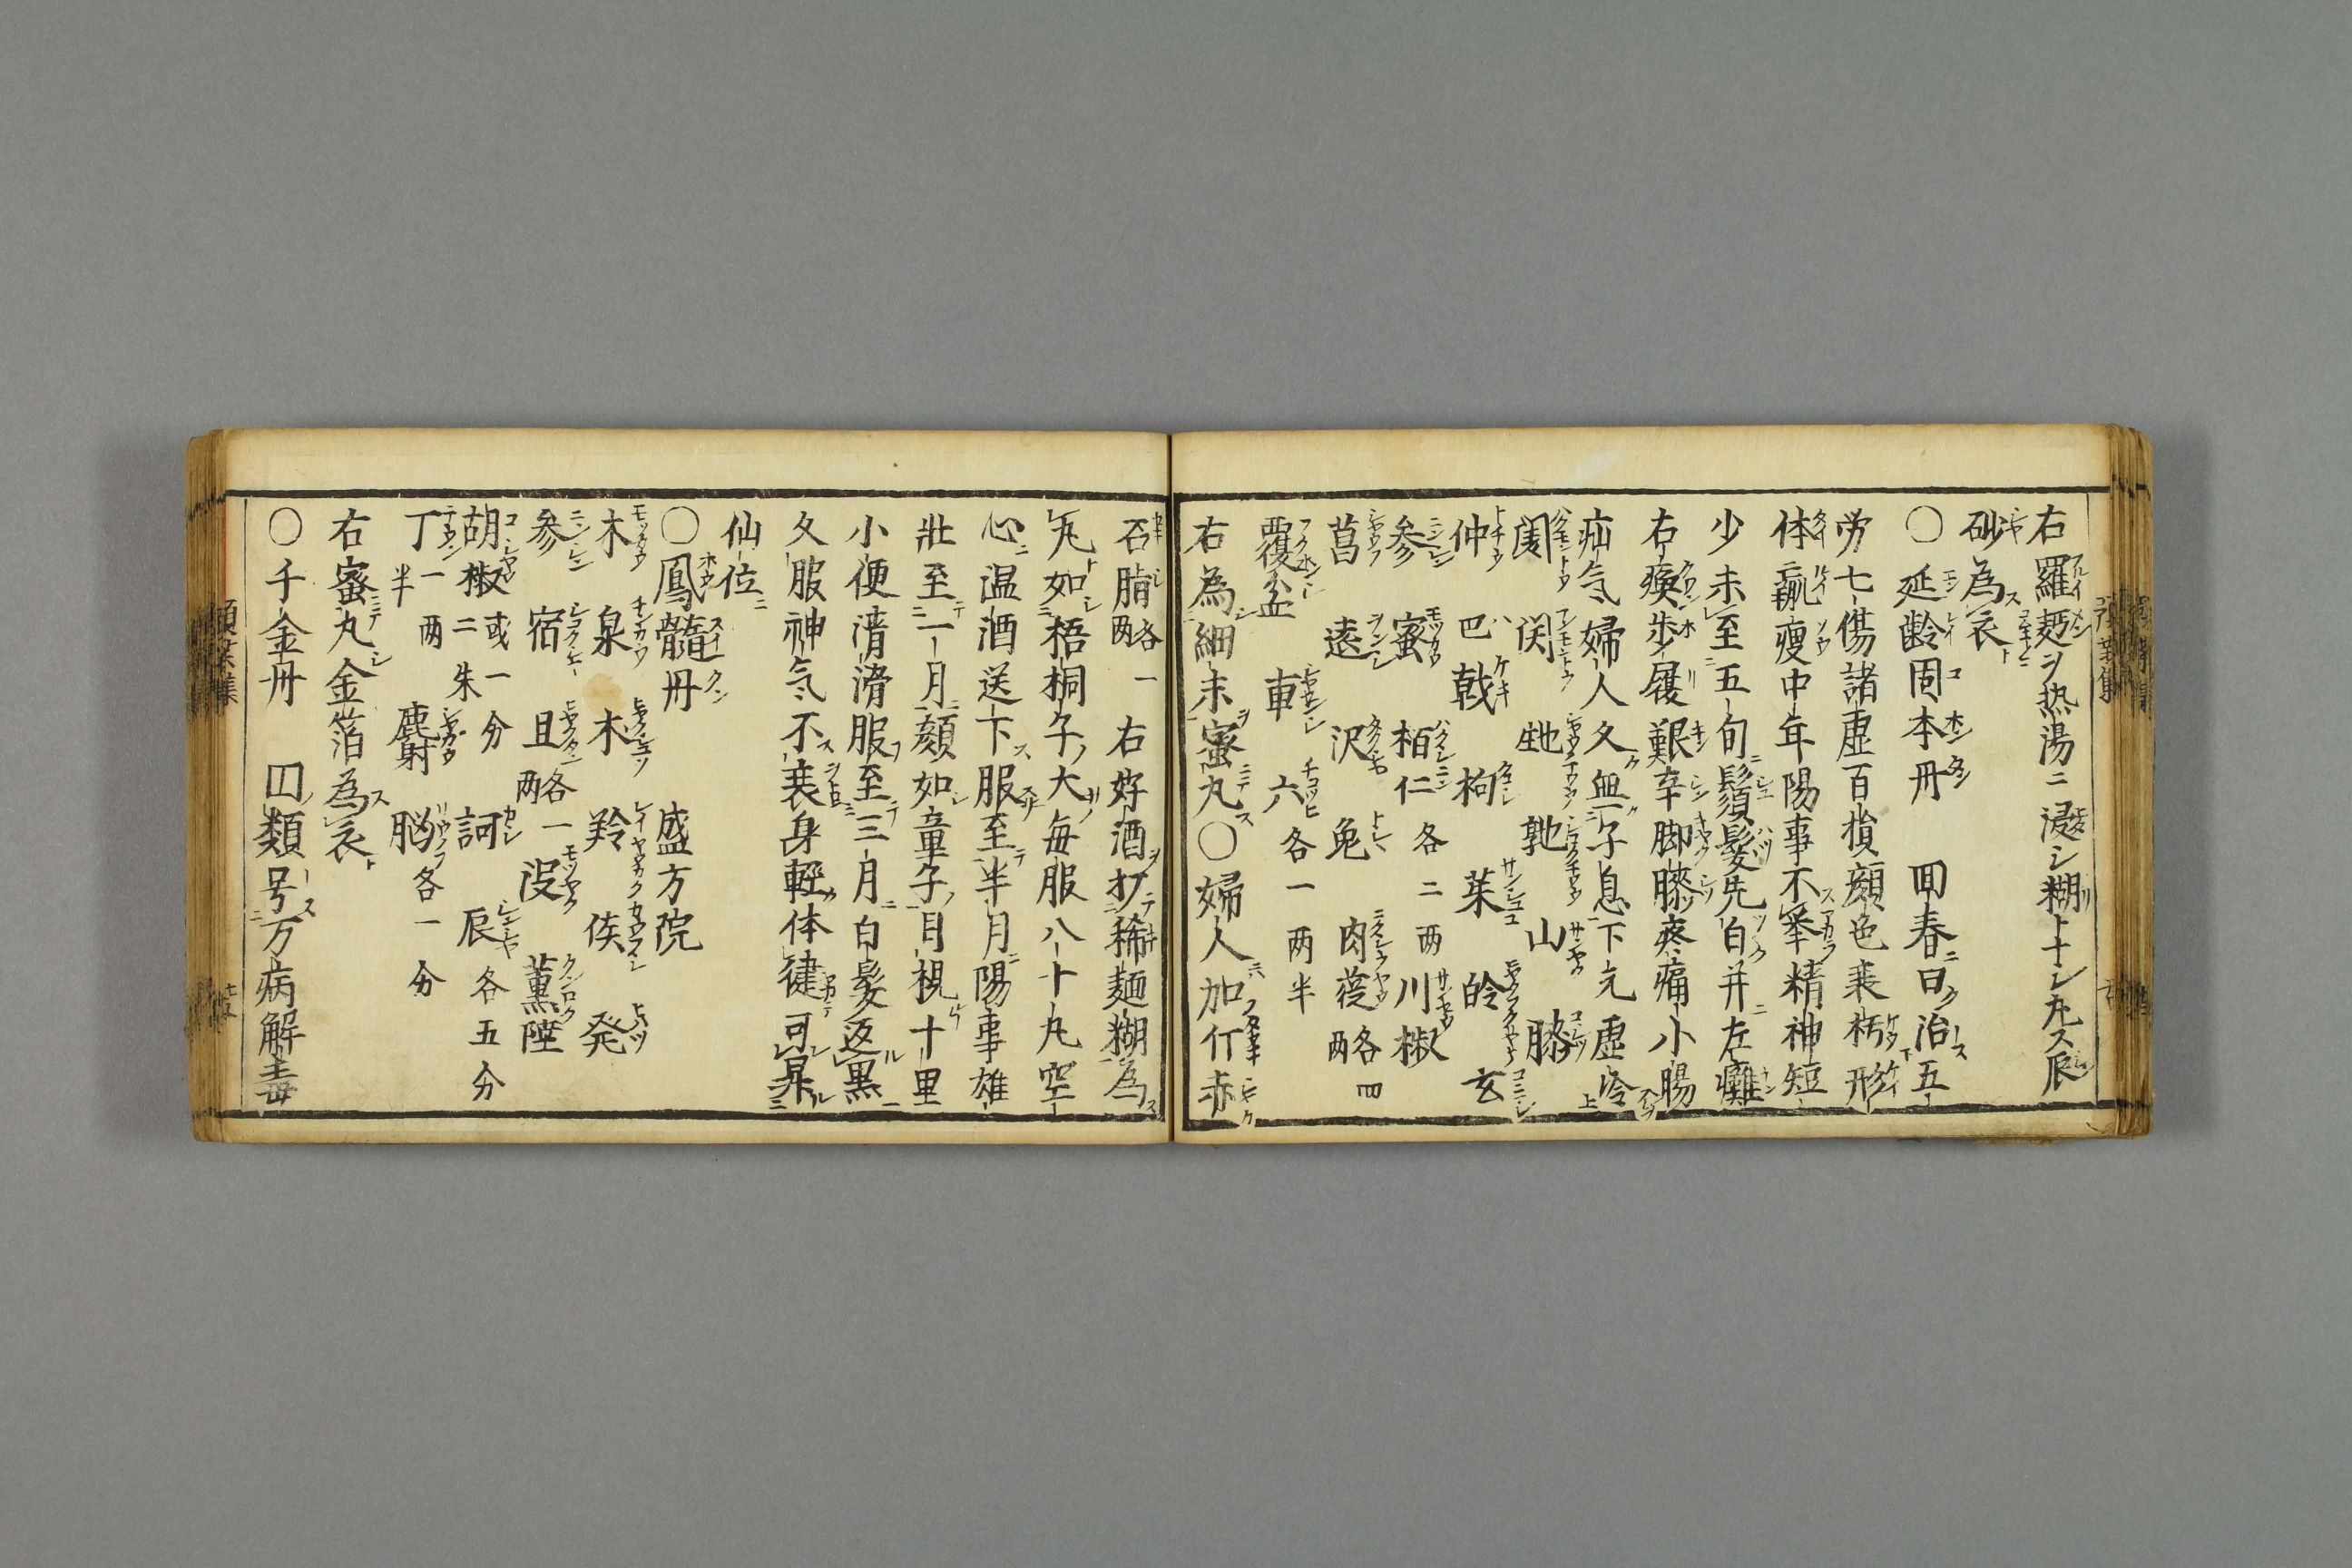 右羅麪ヲ热湯ニ浸シ糊ト十シ丸ス辰
砂為衣
〇延齢固本丹 回春曰治五
労七傷諸虚百損顔色衰朽形
体羸痩中年陽事不挙精神短
少未至五旬鬚髪先白并左癱
右瘓歩履艱辛脚膝疼痛小腸
疝気婦人久無子息下元虚冷
門 門 生地 熟地 山 膝
仲 巴戟 枸 茱 苓 玄
参 蜜 栢仁各二两 川椒
菖 遠 沢 兎 肉蓯各四两
覆盆 車 六各一两半
右為細末蜜丸〇婦人加当赤
石脂各一两 右好酒打稀麺糊為
丸如梧桐子大毎服八十丸空
心温酒送下服至半月陽事雄
壯至一月顔如童子目視十里
小便清滑服至三月白髪返黒
久服神気不衰身軽体健可昇
仙位
〇鳳髓丹 盛方院
木 泉 木 羚 侯 発
参 宿 且各一两 没 薫陸
胡椒二朱或一分 訶 辰各五分
丁一两半 麝 脳各一分
右蜜丸金箔為衣
〇千金丹 四類号万病解毒